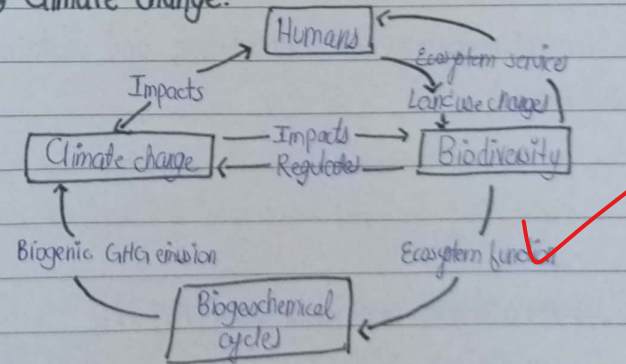 Climate change.
Humans
Ecosystem services
Impacts
Land use changes
Climate change
Impacts
Regulates
Biodiversity
Biogenic GHG emission
Ecosystem function
Biogeochemical
cycles